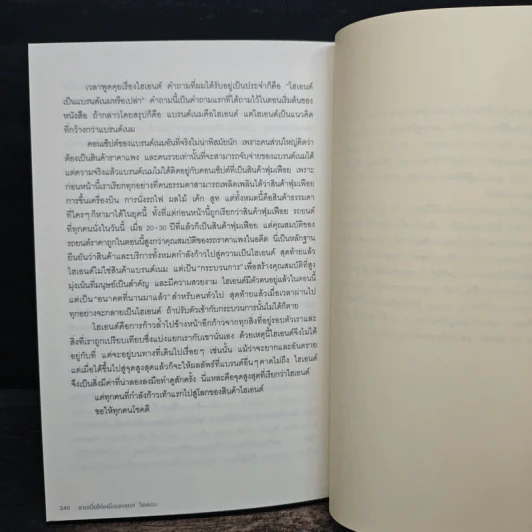 เวลาพูดคุยเรื่องไฮเอนด์ คำถามที่ผมได้รับอยู่เป็นประจำก็คือ "ไฮเอนด์
เป็นแบรนด์เนมหรือเปล่า" คำถามนี้เป็นคำถามแรกที่ได้ถามไว้ในตอนเริ่มต้นของ
หนังสือ ถ้ากล่าวโดยสรุปก็คือ แบรนด์เนมคือไฮเอนด์ แต่ไฮเอนด์เป็นแนวคิด
ที่กว้างกว่าแบรนด์เนม
คอนเซ็ปต์ของแบรนด์เนมอันที่จริงไม่น่าพิสมัยนัก เพราะคนส่วนใหญ่คิดว่า
ต้องเป็นสินค้าราคาแพง และคนรวยเท่านั้นที่จะสามารถจับจ่ายของแบรนด์เนมได้
แต่ความจริงแล้วแบรนด์เนมไม่ได้ติดอยู่กับคอนเซ็ปต์ที่เป็นสินค้าฟุ่มเฟือย เพราะ
ก่อนหน้านี้เราเรียกทุกอย่างที่คนธรรมดาสามารถเพลิดเพลินได้ว่าสินค้าฟุ่มเฟือย
การขึ้นเครื่องบิน การนั่งรถไฟ ผลไม้ เค้ก สูท แต่ทั้งหมดนี้คือสินค้าธรรมดา
ที่ใครๆ ก็หามาได้ในยุคนี้ ทั้งที่แต่ก่อนหน้านี้ถูกเรียกว่าสินค้าฟุ่มเฟือย รถยนต์
ที่ทุกคนนั่งในวันนี้ เมื่อ 20-30 ปีที่แล้วก็เป็นสินค้าฟุ่มเฟือย แต่คุณสมบัติของ
รถยนต์ราคาถูกในตอนนี้สูงกว่าคุณสมบัติของรถราคาแพงในอดีต นี่เป็นหลักฐาน
ยืนยันว่าสินค้าและบริการทั้งหมดกำลังก้าวไปสู่ความเป็นไฮเอนด์ สุดท้ายแล้ว
ไฮเอนด์ไม่ใช่สินค้าแบรนด์เนม แต่เป็น "กระบวนการ" เพื่อสร้างคุณสมบัติที่สูง
มุ่งเน้นที่มนุษย์เป็นสำคัญ และมีความสวยงาม ไฮเอนด์มีตัวตนอยู่แล้วในตอนนี้
แต่เป็น "อนาคตที่นานมาแล้ว" สำหรับคนทั่วไป สุดท้ายแล้วเมื่อเวลาผ่านไป
ทุกอย่างจะกลายเป็นไฮเอนด์ ถ้าปรับตัวเข้ากับกระบวนการนั้นไม่ได้ก็ตาย
ไฮเอนด์คือการก้าวล้ำไปข้างหน้าอีกก้าวจากทุกสิ่งที่อยู่รอบตัวเราและ
สิ่งที่เราถูกเปรียบเทียบซึ่งแบ่งแยกเรากับเขานั่นเอง ด้วยเหตุนี้ไฮเอนด์จึงไม่ได้
อยู่กับที่ แต่จะอยู่บนทางที่เดินไปเรื่อยๆ เช่นนั้น แม้ว่าจะยากและอันตราย
แต่เมื่อได้ขึ้นไปสู่จุดสูงสุดแล้วก็จะให้ผลลัพธ์ที่แบรนด์อื่นๆ คาดไม่ถึง ไฮเอนด์
จึงเป็นสิ่งมีค่าที่น่าลองลงมือทำดูสักครั้ง นี่แหละคือจุดสูงสุดที่เรียกว่าไฮเอนด์
แด่ทุกคนที่กำลังก้าวเท้าแรกไปสู่โลกของสินค้าไฮเอนด์
ขอให้ทุกคนโชคดี
240